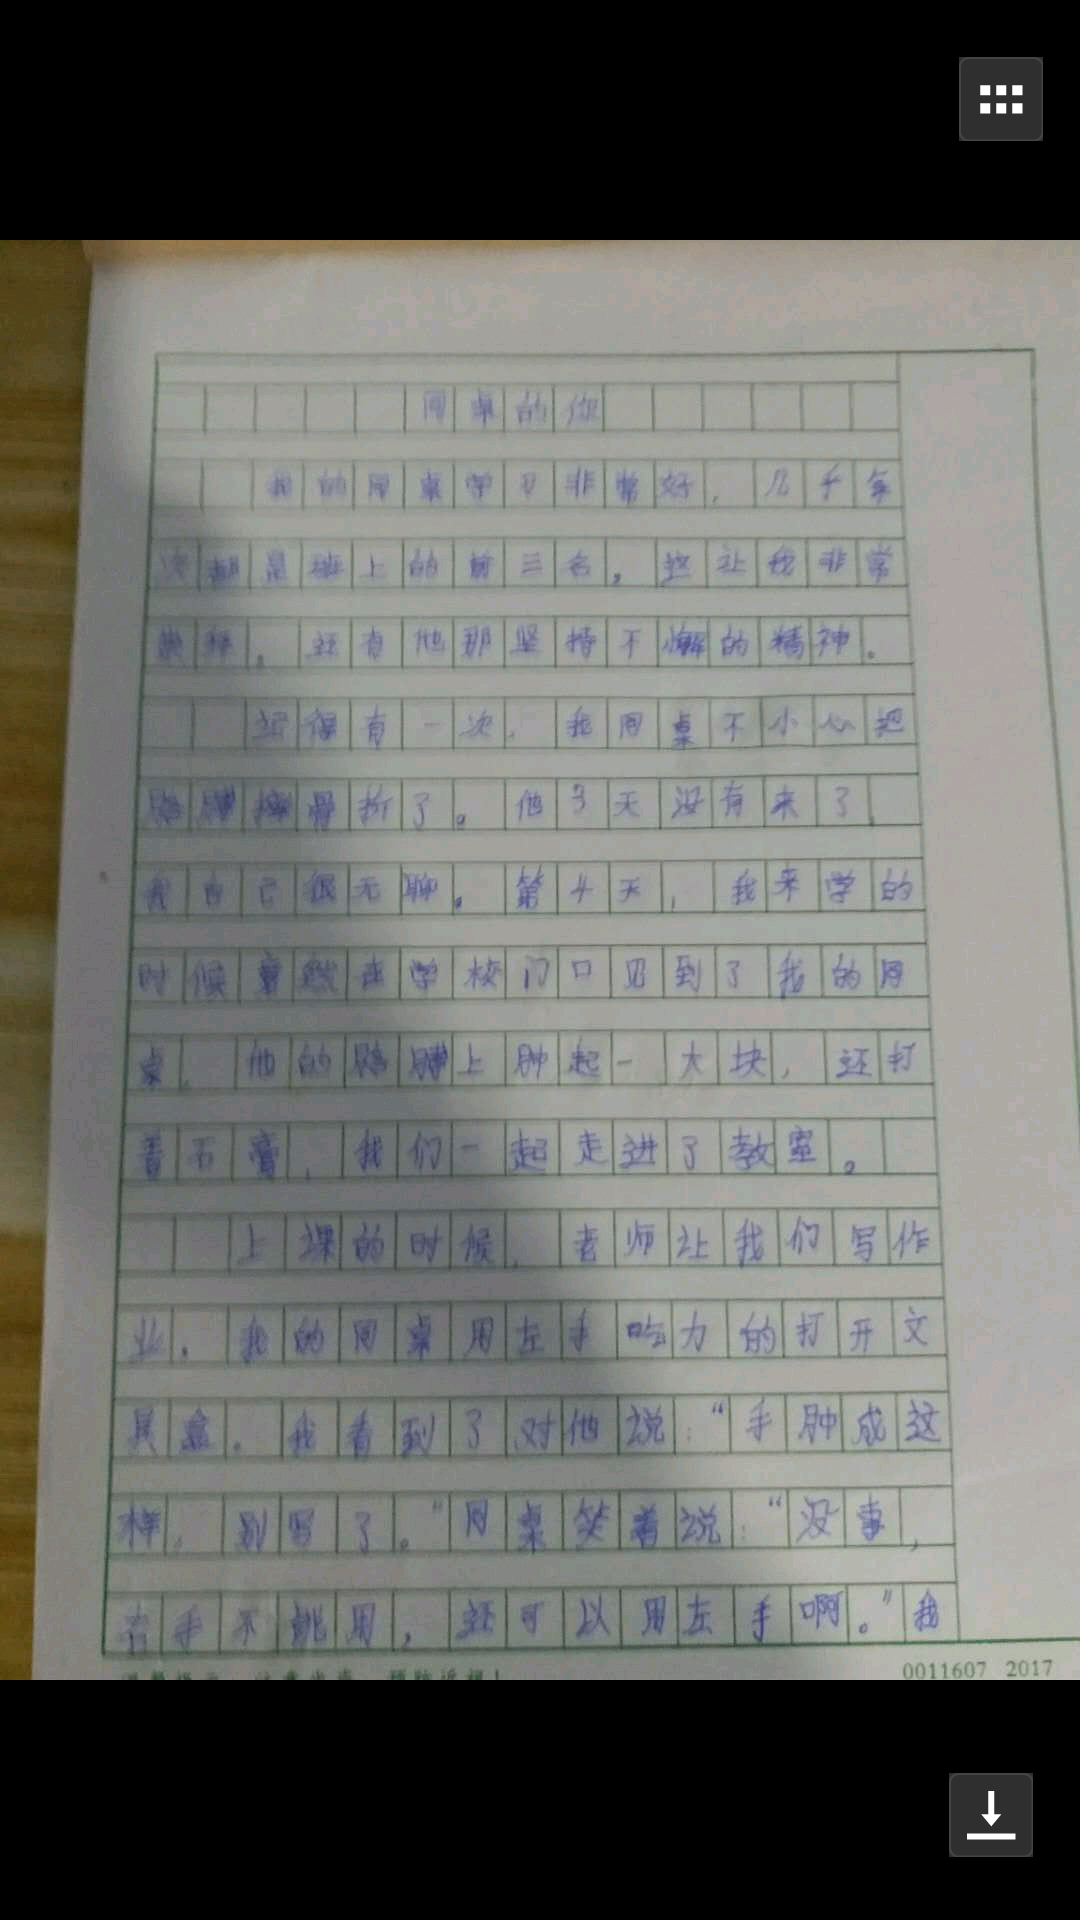 同桌的你
我的同桌学习非常好，几乎每
次都是班上的前三名。这让我非常
。还有他那坚持不懈的精神。
记得有一次，我同桌不小心把
胳膊摔骨折了。他3天没有来了
我自己很无聊。第4天，我来学的
时候竟然在学校门口见到了我的同
桌，他的胳膊上肿起一大块，还打
着石膏，我们一起走进了教室。
上课的时候，老师让我们写作
业。我的同桌用左手吃力的打开文
具盒。我看到了对他说：“手肿成这
样，别写了。”同桌笑着说：“没事，
右手不能用，还可以用左手啊。”我
0011607 2017